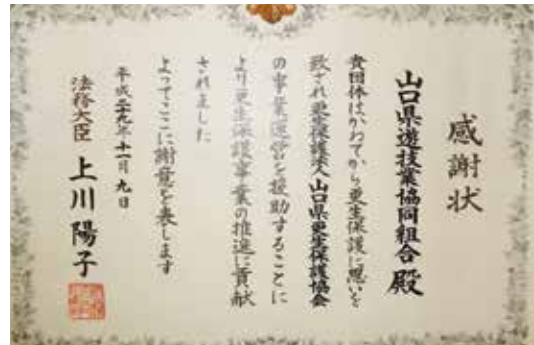 感謝状
山口県遊技業協同組合 殿
貴団体はかねてから更生保護に思いを
致され更生保護法人山口県更生保護協会
の事業運営を援助することに
より更生保護事業の推進に貢献
されました
よってここに謝意を表します
平成二十九年十一月九日
法務大臣 上川陽子